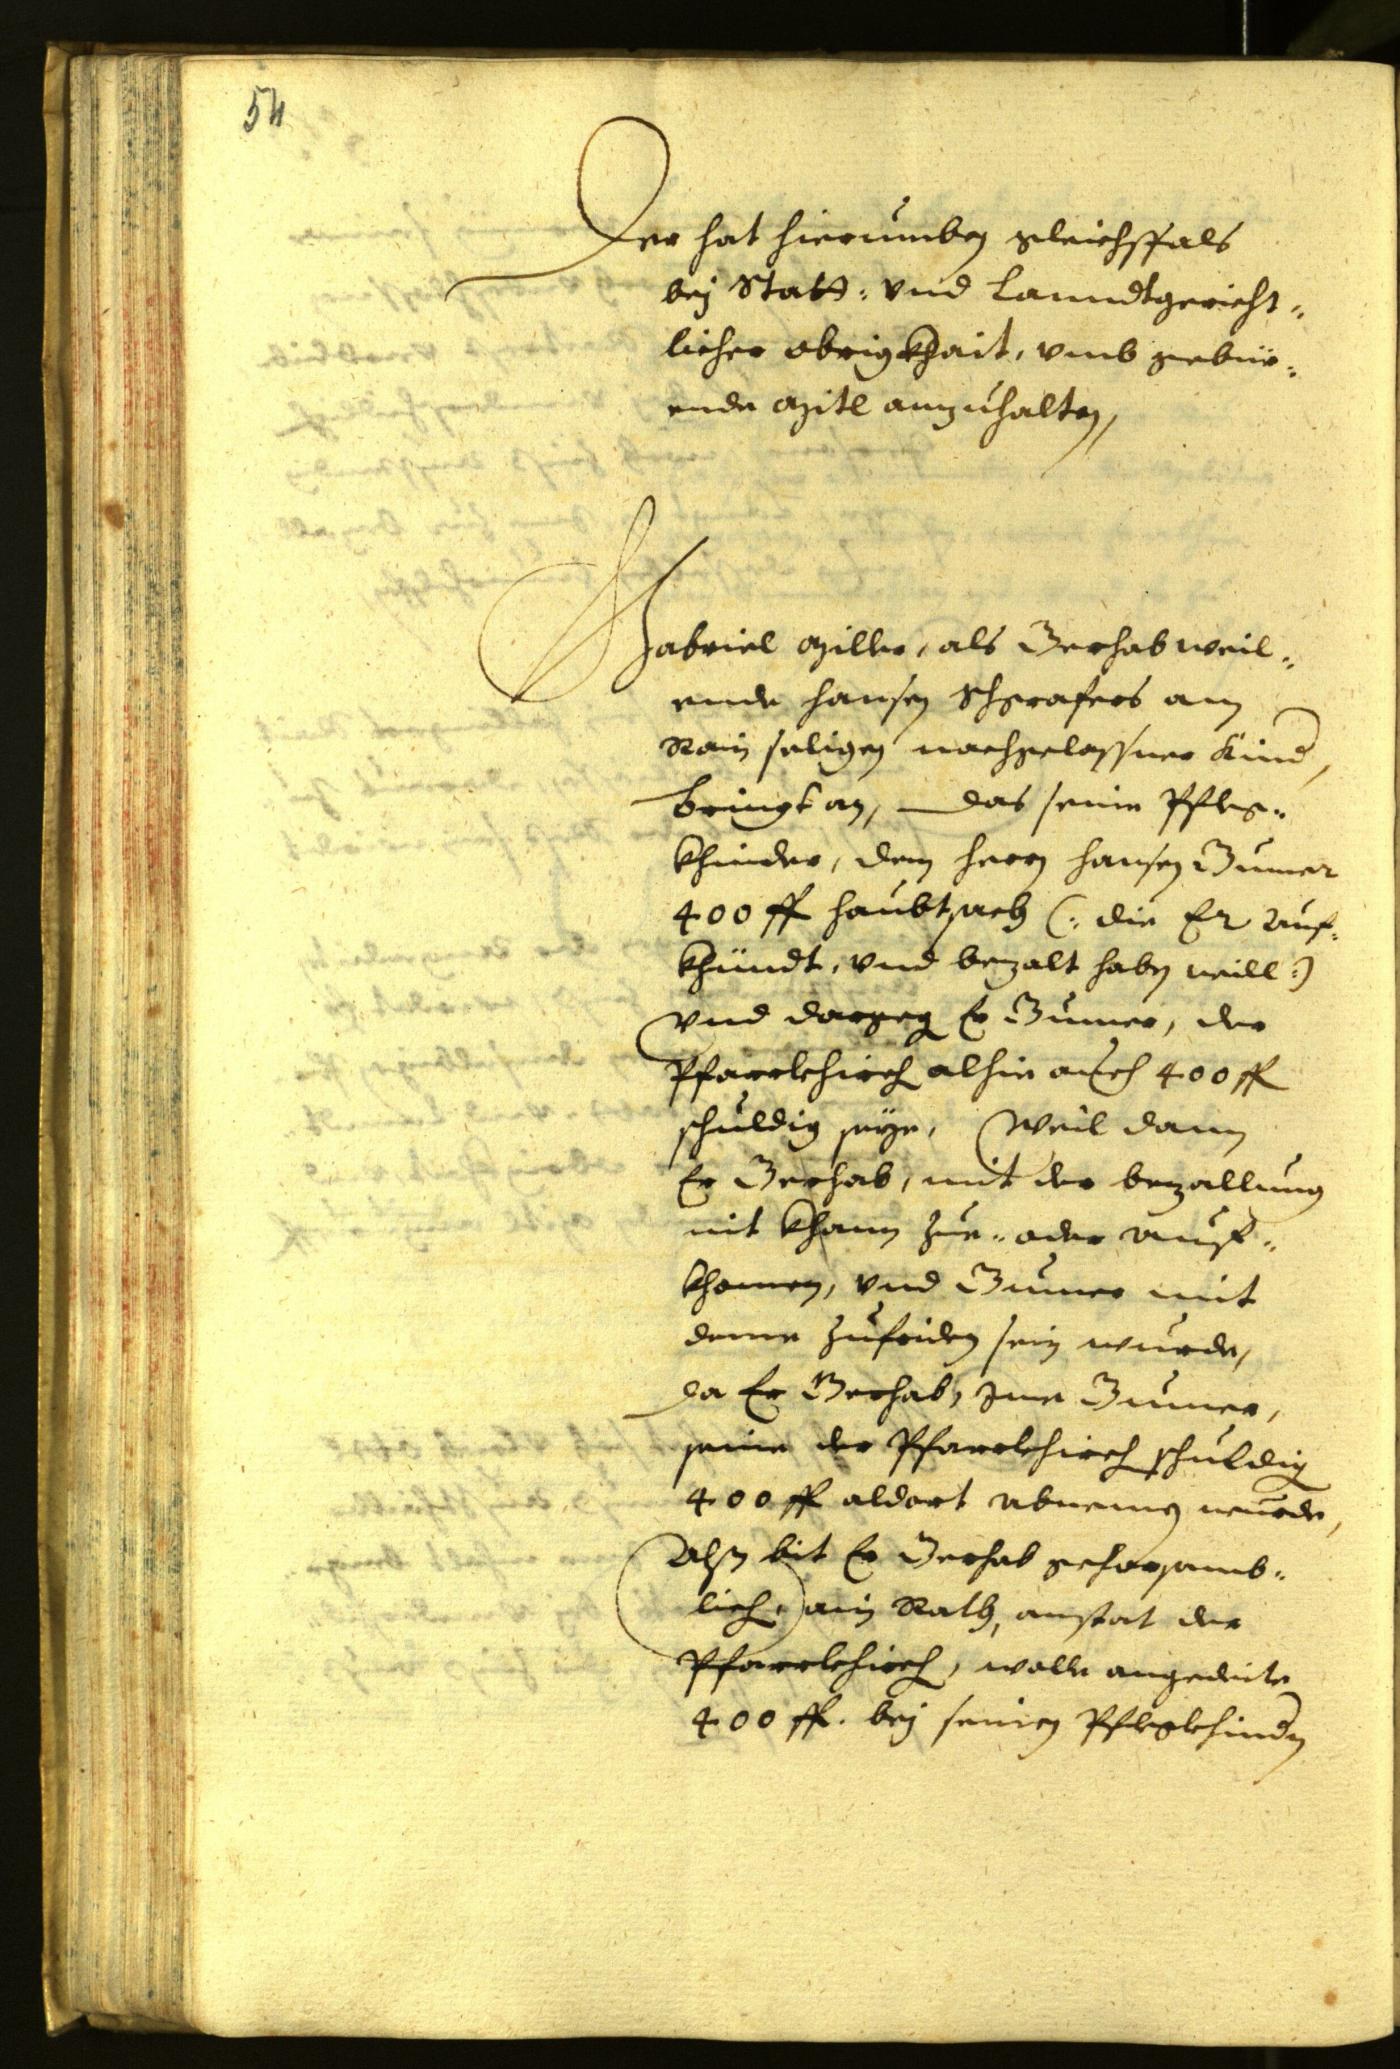 54
Der hat hierumben gleichsfals
bej Statt- vnd Lanndtgericht-
licher obrigkhait, vmb gebür-
ende mitl anzuhalten,
Gabriel Miller, als Gerhab weil-
ende Hansen Schgrafers am
Rain seligen nachgelassner Kind,
bringt an, das seine Pfleg-
khinder, dem herrn Hansen Gumer
400 fl haubtsach (: die Er auf-
khündt, vnd bezalt haben will :)
vnd dargegen Er Gumer, der
Pfarrkhirch alhie auch 400 fl
schuldig seye, Weil dann
Er Gerhab, mit der bezallung
nit khann zue- oder auf-
khomen, vnd Gumer mit
deme zufriden sein wurde,
da Er Gerhab, Ime Gumer,
seine der Pfarrkhirch schuldig
400 fl aldort abnemen wurde,
Alß bit Er Gerhab gehorsamb-
lich, ain Rath, anstat der
Pfarrkhirch, wolle angedeite
400 fl. bej seinen Pflegkhindern